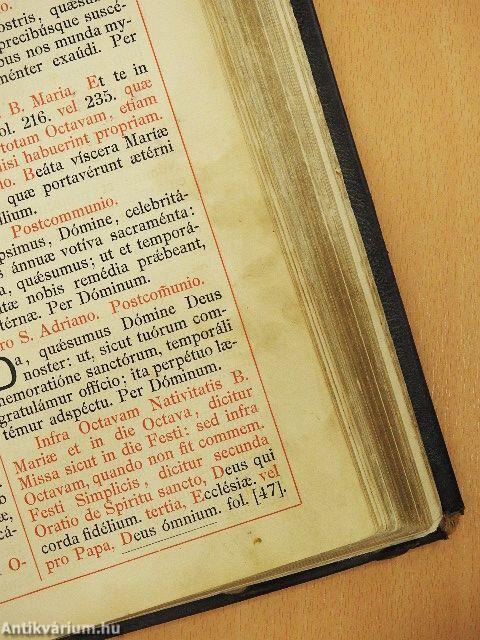 ostris, quǽsum
precibúsque suscé-
bus nos munda my-
ménter exaúdi. Per
B. Maria. Et te in
ol. 216. vel 235. quæ
totam Octavam, etiam
nisi habuerint propriam.
io. Beáta víscera Maríæ
quæ portavérunt ætérni
ílium.
Postcommunio.
psimus, Dómine, celebritá-
s ánnuæ votíva sacraménta:
a, quǽsumus; ut et temporá-
itæ nobis remédia prǽbeant,
térnæ. Per Dóminum.
ro S. Adriano. Postcom̃unio.
Da, quǽsumus Dómine Deus
noster: ut, sicut tuórum com-
memoratióne sanctórum, temporáli
gratulámur offício; ita perpétuo læ-
témur adspéctu. Per Dóminum.
Infra Octavam Nativitatis B.
Mariæ et in die Octava, dicitur
Missa sicut in die Festi: sed infra
Octavam, quando non fit commem.
Festi Simplicis, dicitur secunda
Oratio de Spiritu sancto, Deus qui
corda fidélium. tertia, Ecclésiæ. vel
pro Papa, Deus ómnium. fol. [47].
cá-
O-
Antikvárium.hu